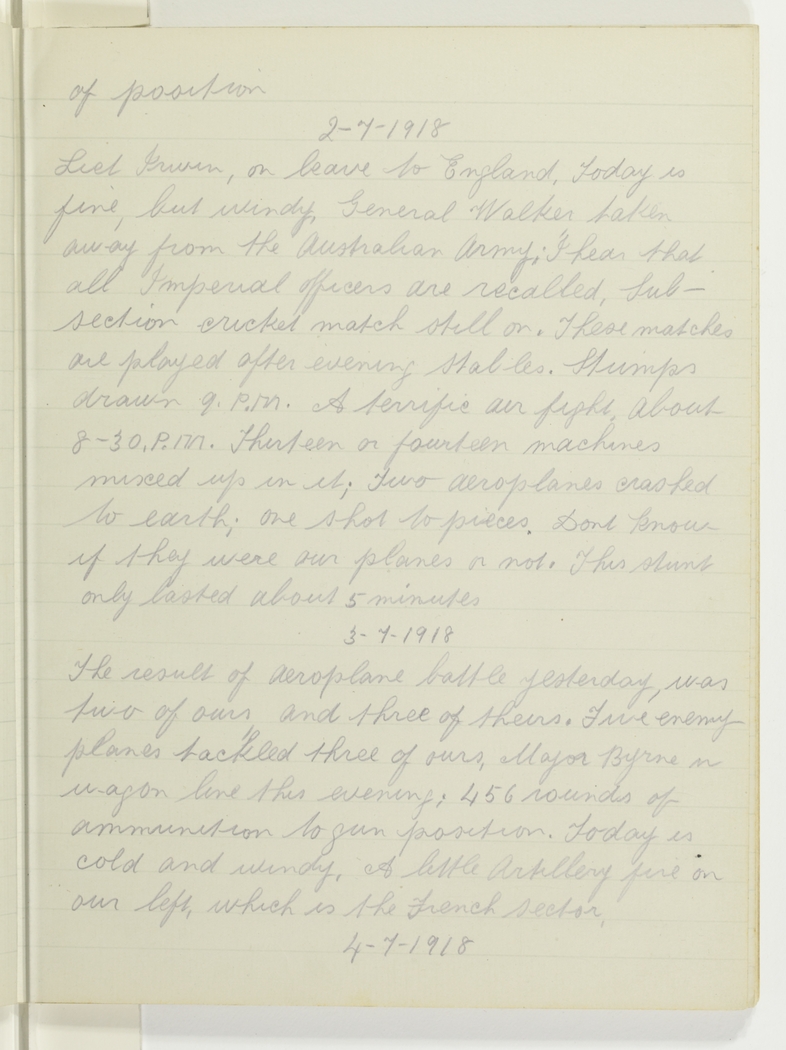 of position
2-7-1918
Liet Irwin, on leave to England, Today is
fine, but windy, General Walker taken
away from the Australian Army; I hear that
all Imperial officers are recalled, Sub-
section cricket match still on. These matches
are played after evening stables. Stumps
drawn 9. P.M. A terrific air fight, about
8-30. P.M. Thirteen or fourteen machines
mixed up in it; Two aeroplanes crashed
to earth; one shot to pieces. Dont know
if they were our planes or not. This stunt
only lasted about 5 minutes
3-7-1918
The result of aeroplane battle yesterday, was
two of ours, and three of theirs. Five enemy
planes tackled three of ours, Major Byrne in
wagon line this evening; 456 rounds of
ammunition to gun position. Today is
cold and windy. A little Artillery fire on
our left, which is the French sector,
4-7-1918